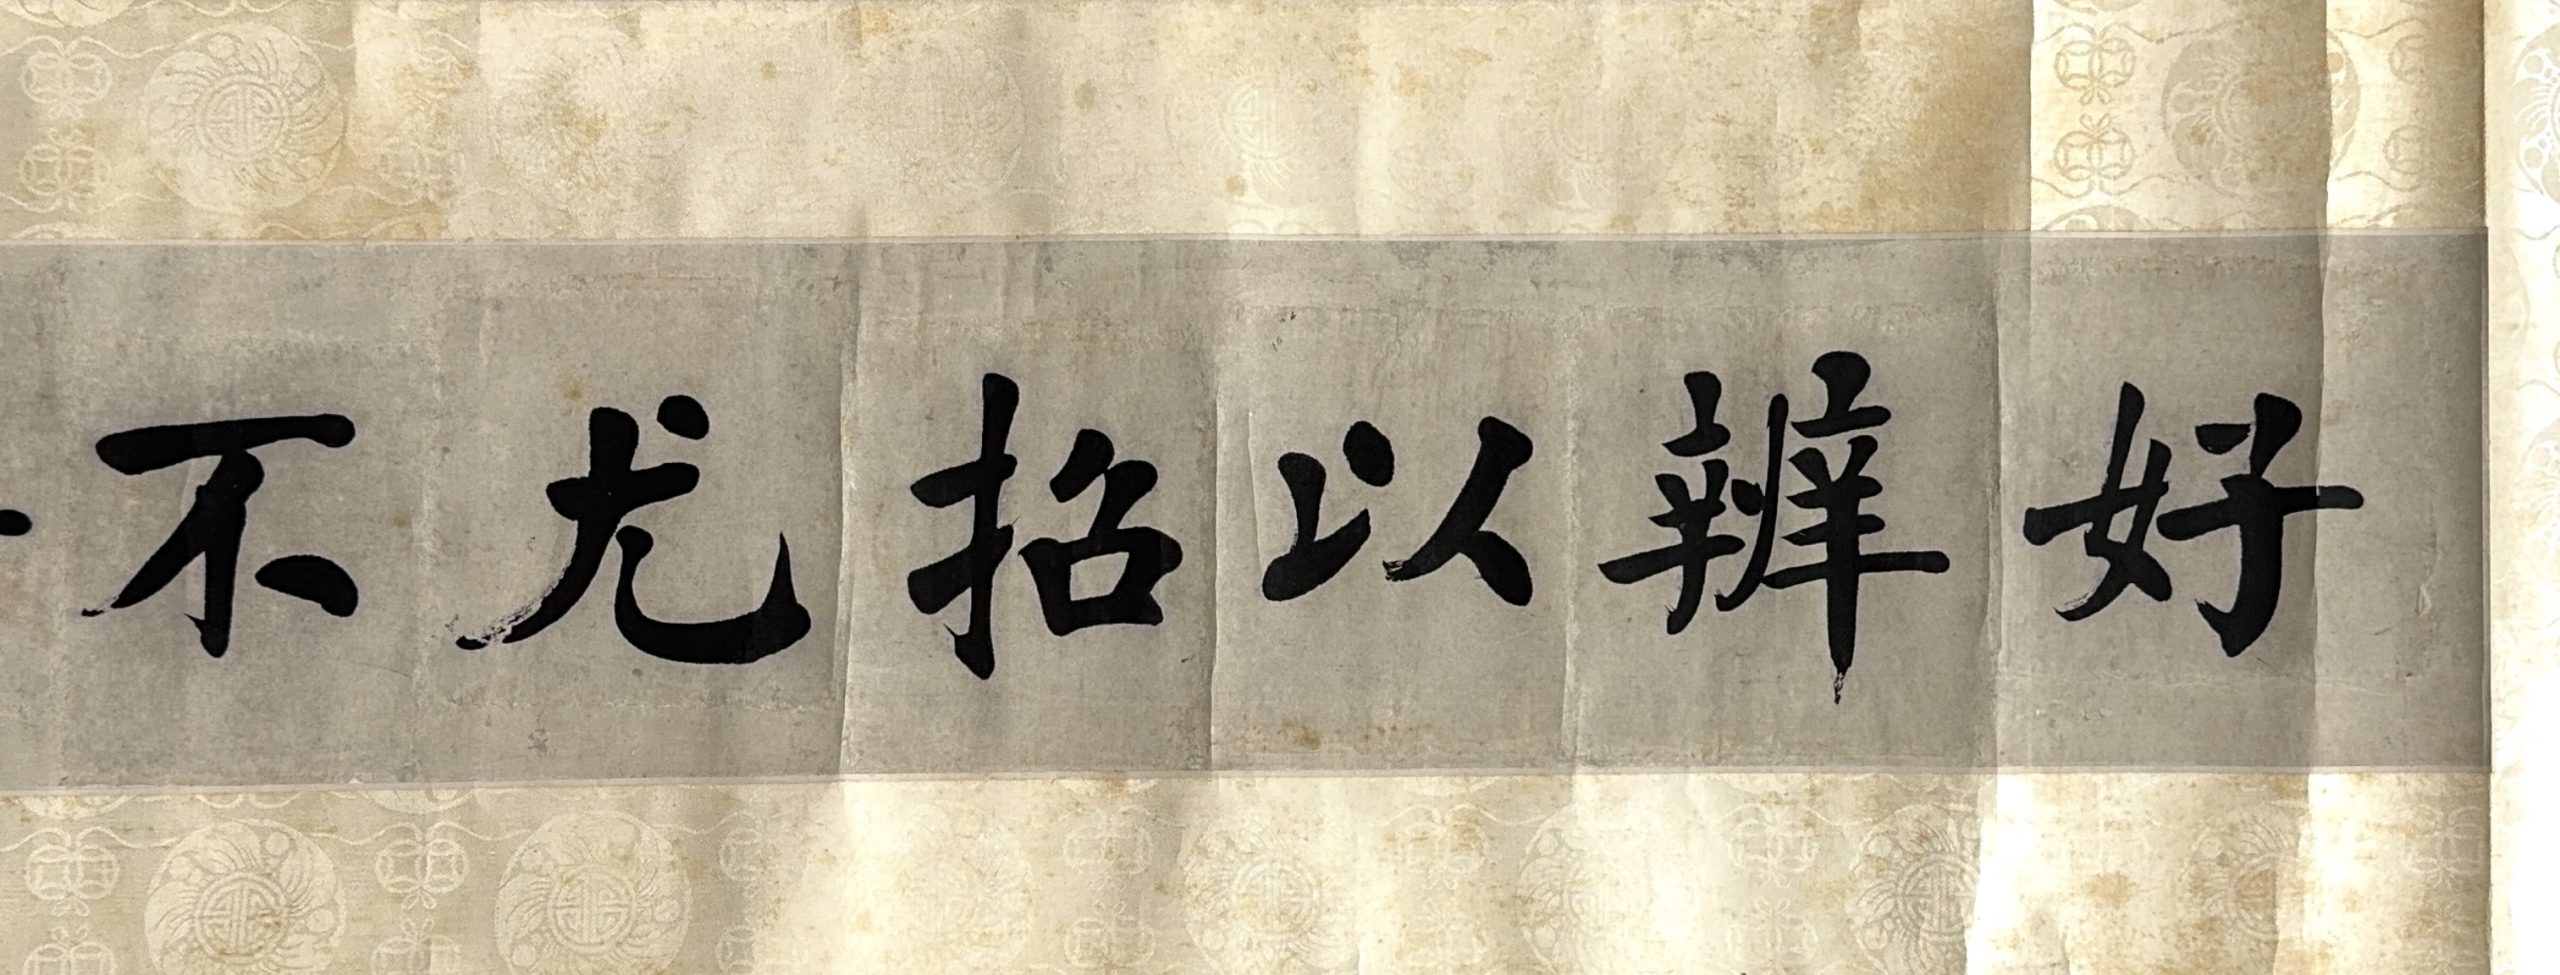 好辨以招尤不